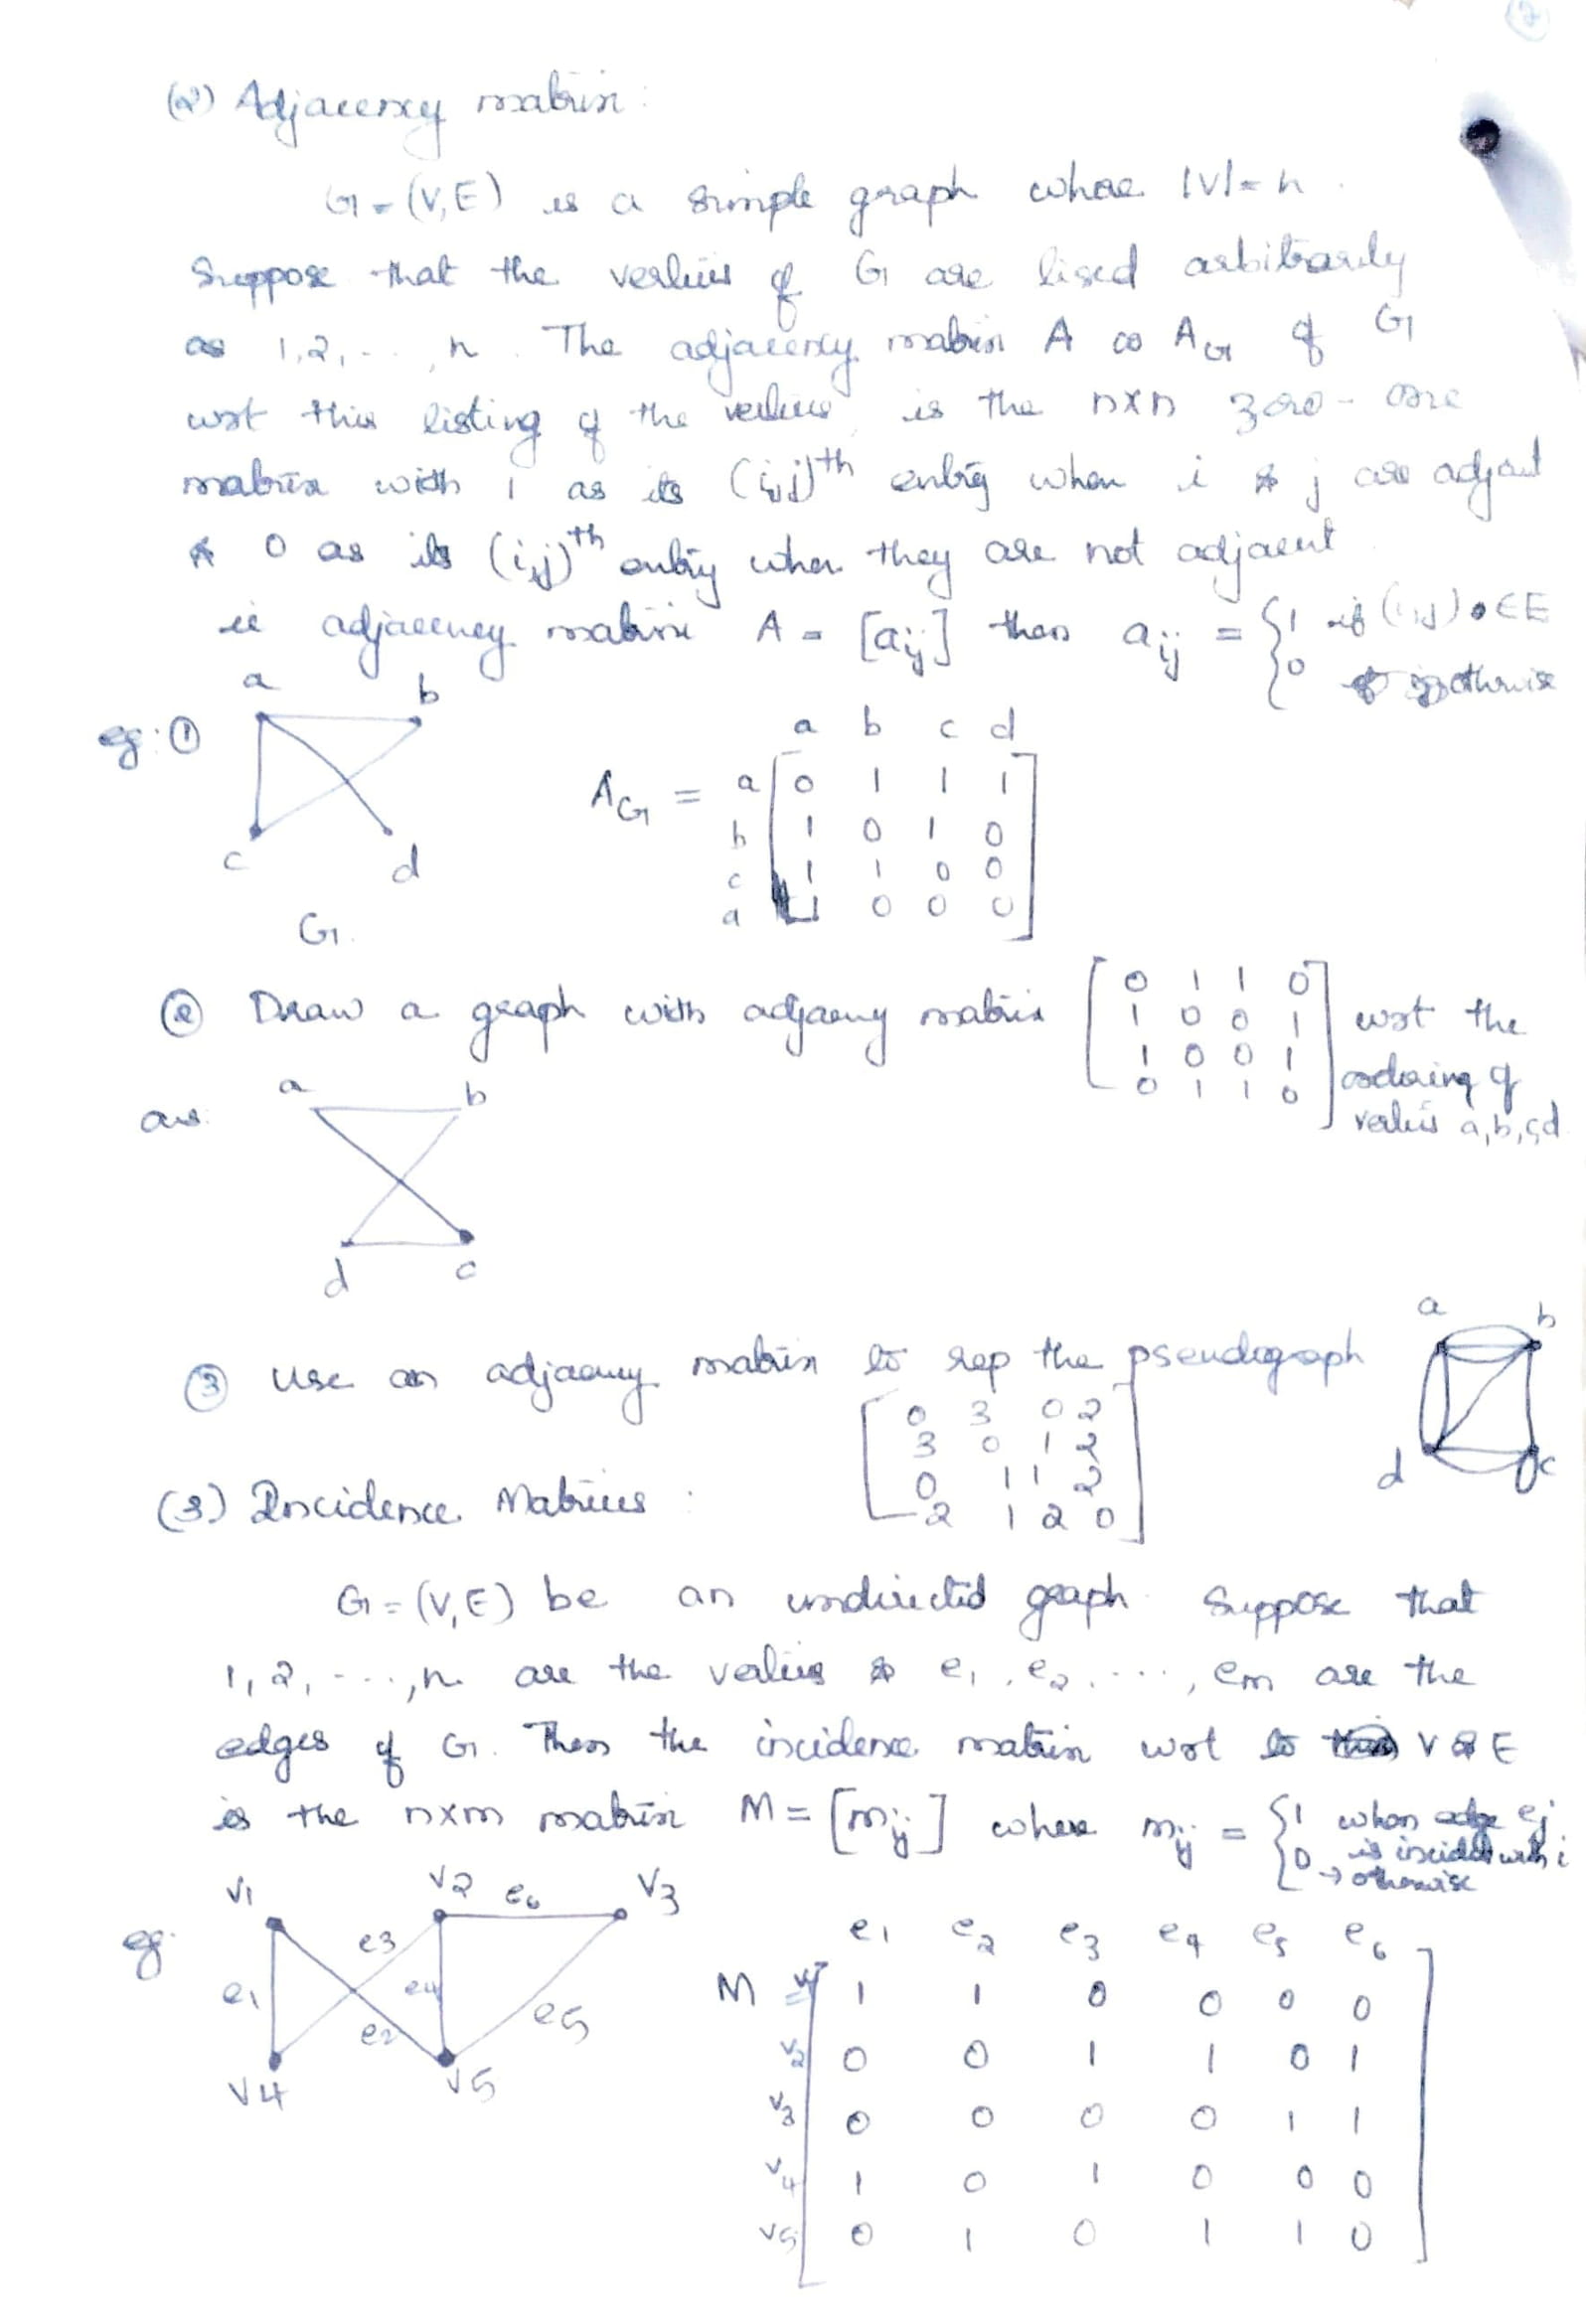 (2) Adjacency matrix :
G = (V,E) is a simple graph where |V| = n .
Suppose that the vertices of G are lised arbitrarily
as 1,2, ..., n . The adjacency matrix A or A_G of G
wrt this listing of the vertices is the n×n zero - one
matrix with 1 as its (i,j)th entry when i & j are adjacent
& 0 as its (i,j)th entry when they are not adjacent
ie adjacency matrix A = [aij] then aij = { 1 if (i,j) ∈ E
0 otherwise
a b
eg: ①
c d
G
a b c d
A_G = a 0 1 1 1
b 1 0 1 0
c 1 1 0 0
d 1 0 0 0
② Draw a graph with adjacency matrix [ 0 1 1 0 wrt the
1 0 0 1
1 0 0 1 ordering of
0 1 1 0 ] vertices a,b,c,d
ans.
a b
d c
③ Use an adjacency matrix to rep the pseudograph
a b
d c
0 3 0 2
3 0 1 2
0 1 1 2
2 1 2 0
(3) Incidence Matrices :
G = (V,E) be an undirected graph. Suppose that
1, 2, ...., n are the vertices & e1, e2, ...., em are the
edges of G. Then the incidence matrix wrt to V & E
is the n×m matrix M = [mij] where mij = { 1 when edge ej
is incident with i
0 → otherwise
eg.
v1 v2 e6 v3
e3
e1 e4
e2 e5
v4 v5
e1 e2 e3 e4 e5 e6
M = v1 1 1 0 0 0 0
v2 0 0 1 1 0 1
v3 0 0 0 0 1 1
v4 1 0 1 0 0 0
v5 0 1 0 1 1 0